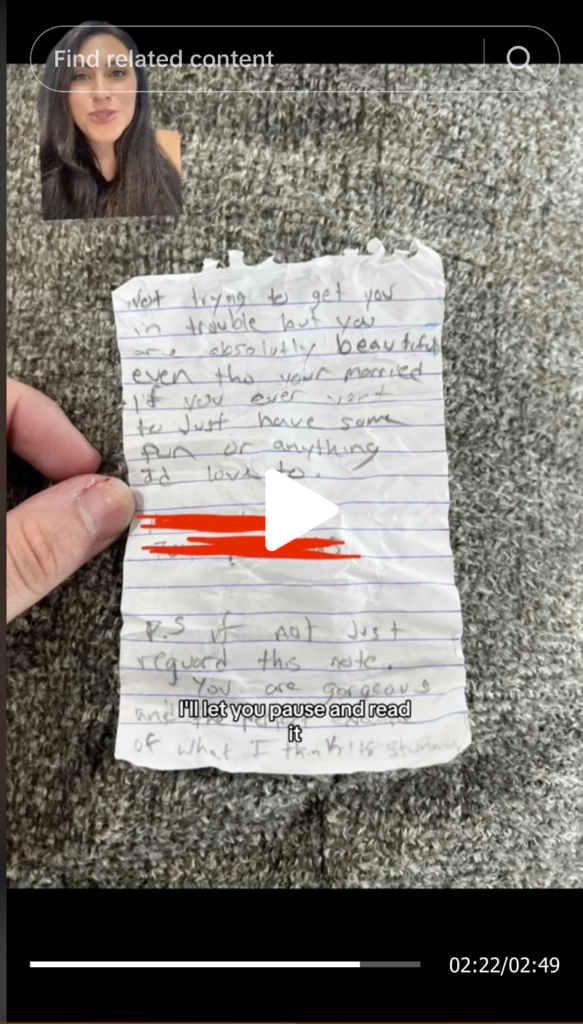 Find related content
Not trying to get you
in trouble but you
are absolutly beautiful
even tho your married
If you ever want
to Just have some
fun or anything
Id love to.
P.S if not Just
reguard this note.
You are gorgeous
I'll let you pause and read
it
and the
of what I think is stunning
02:22/02:49